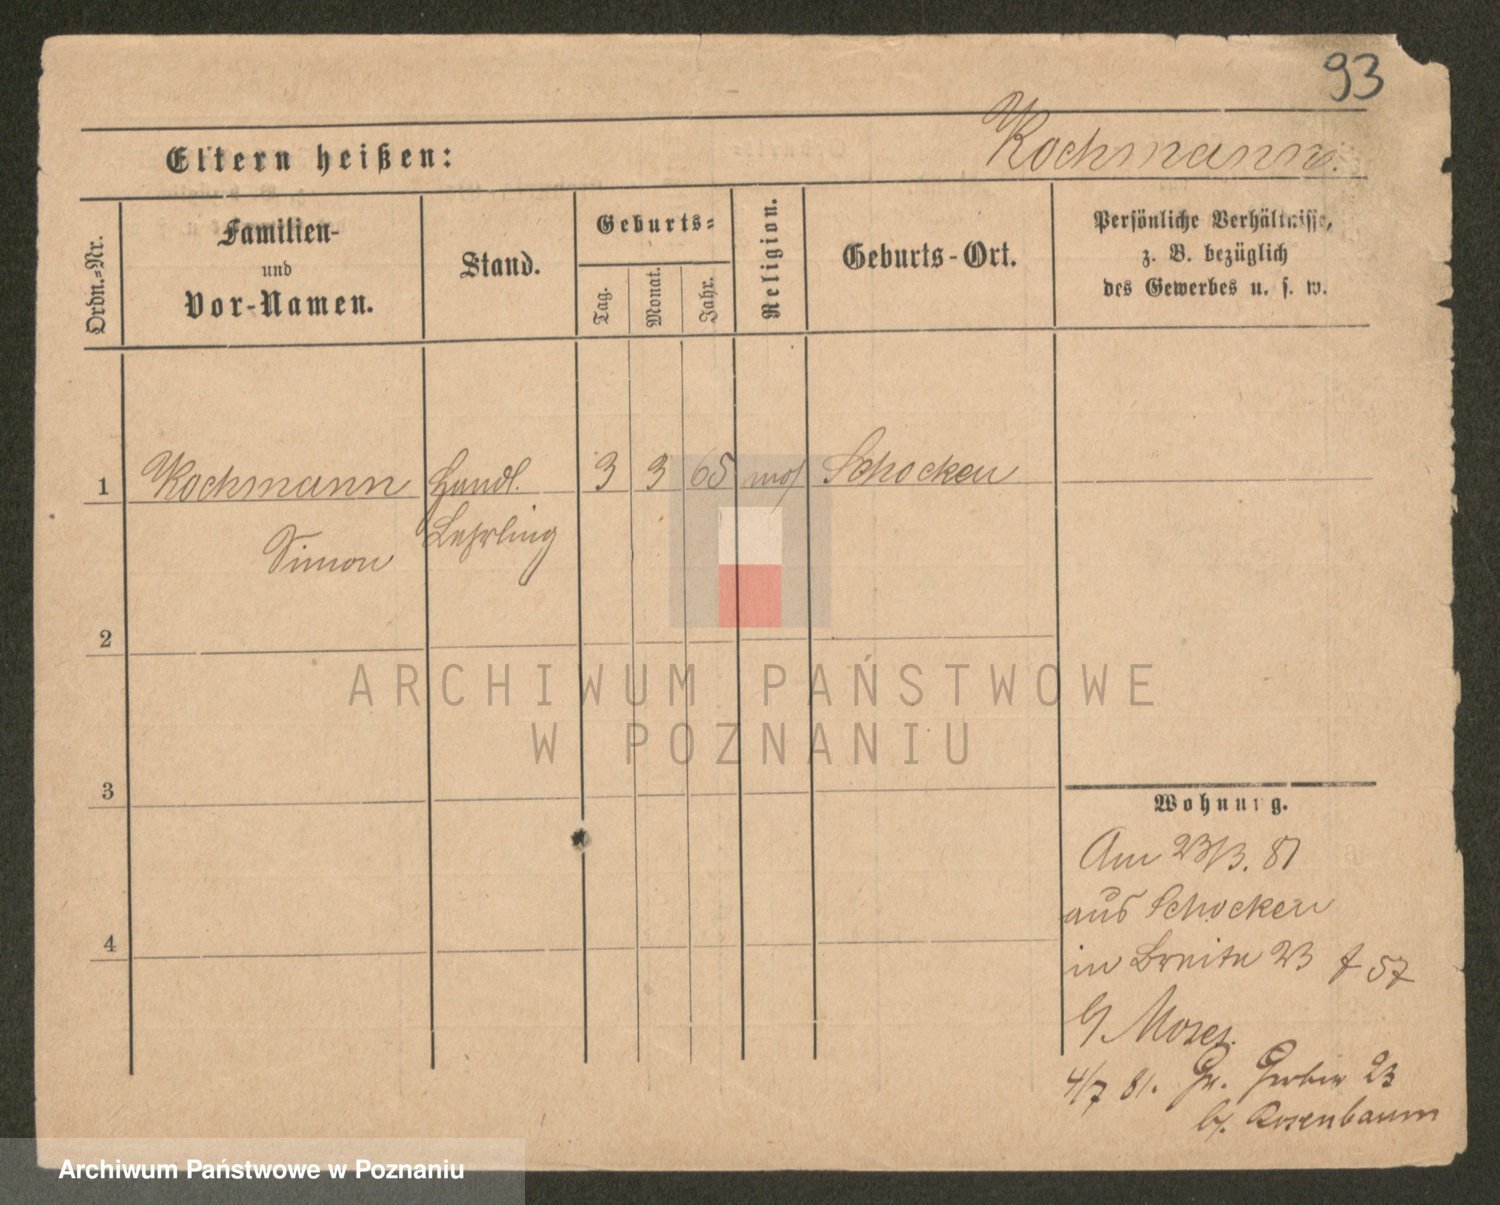 93
Kochmann.
Eltern heißen:
Ordn.-Nr.
Familien-
und
Vor-Namen.
Stand.
Geburts-
Tag.
Monat.
Jahr.
Religion.
Geburts-Ort.
Persönliche Verhältnisse,
z. B. bezüglich
des Gewerbes u. s. w.
1 Kochmann Handl. 3 3 65 mos Schocken
Simon Lehrling
2
3
4
ARCHIWUM PAŃSTWOWE
W POZNANIU
Wohnung.
Am 23/3. 81
aus Schocken
in Breite 23 57
b/ Moses.
4/7 81. Gr. Gerber 23
b/. Rosenbaum
Archiwum Państwowe w Poznaniu